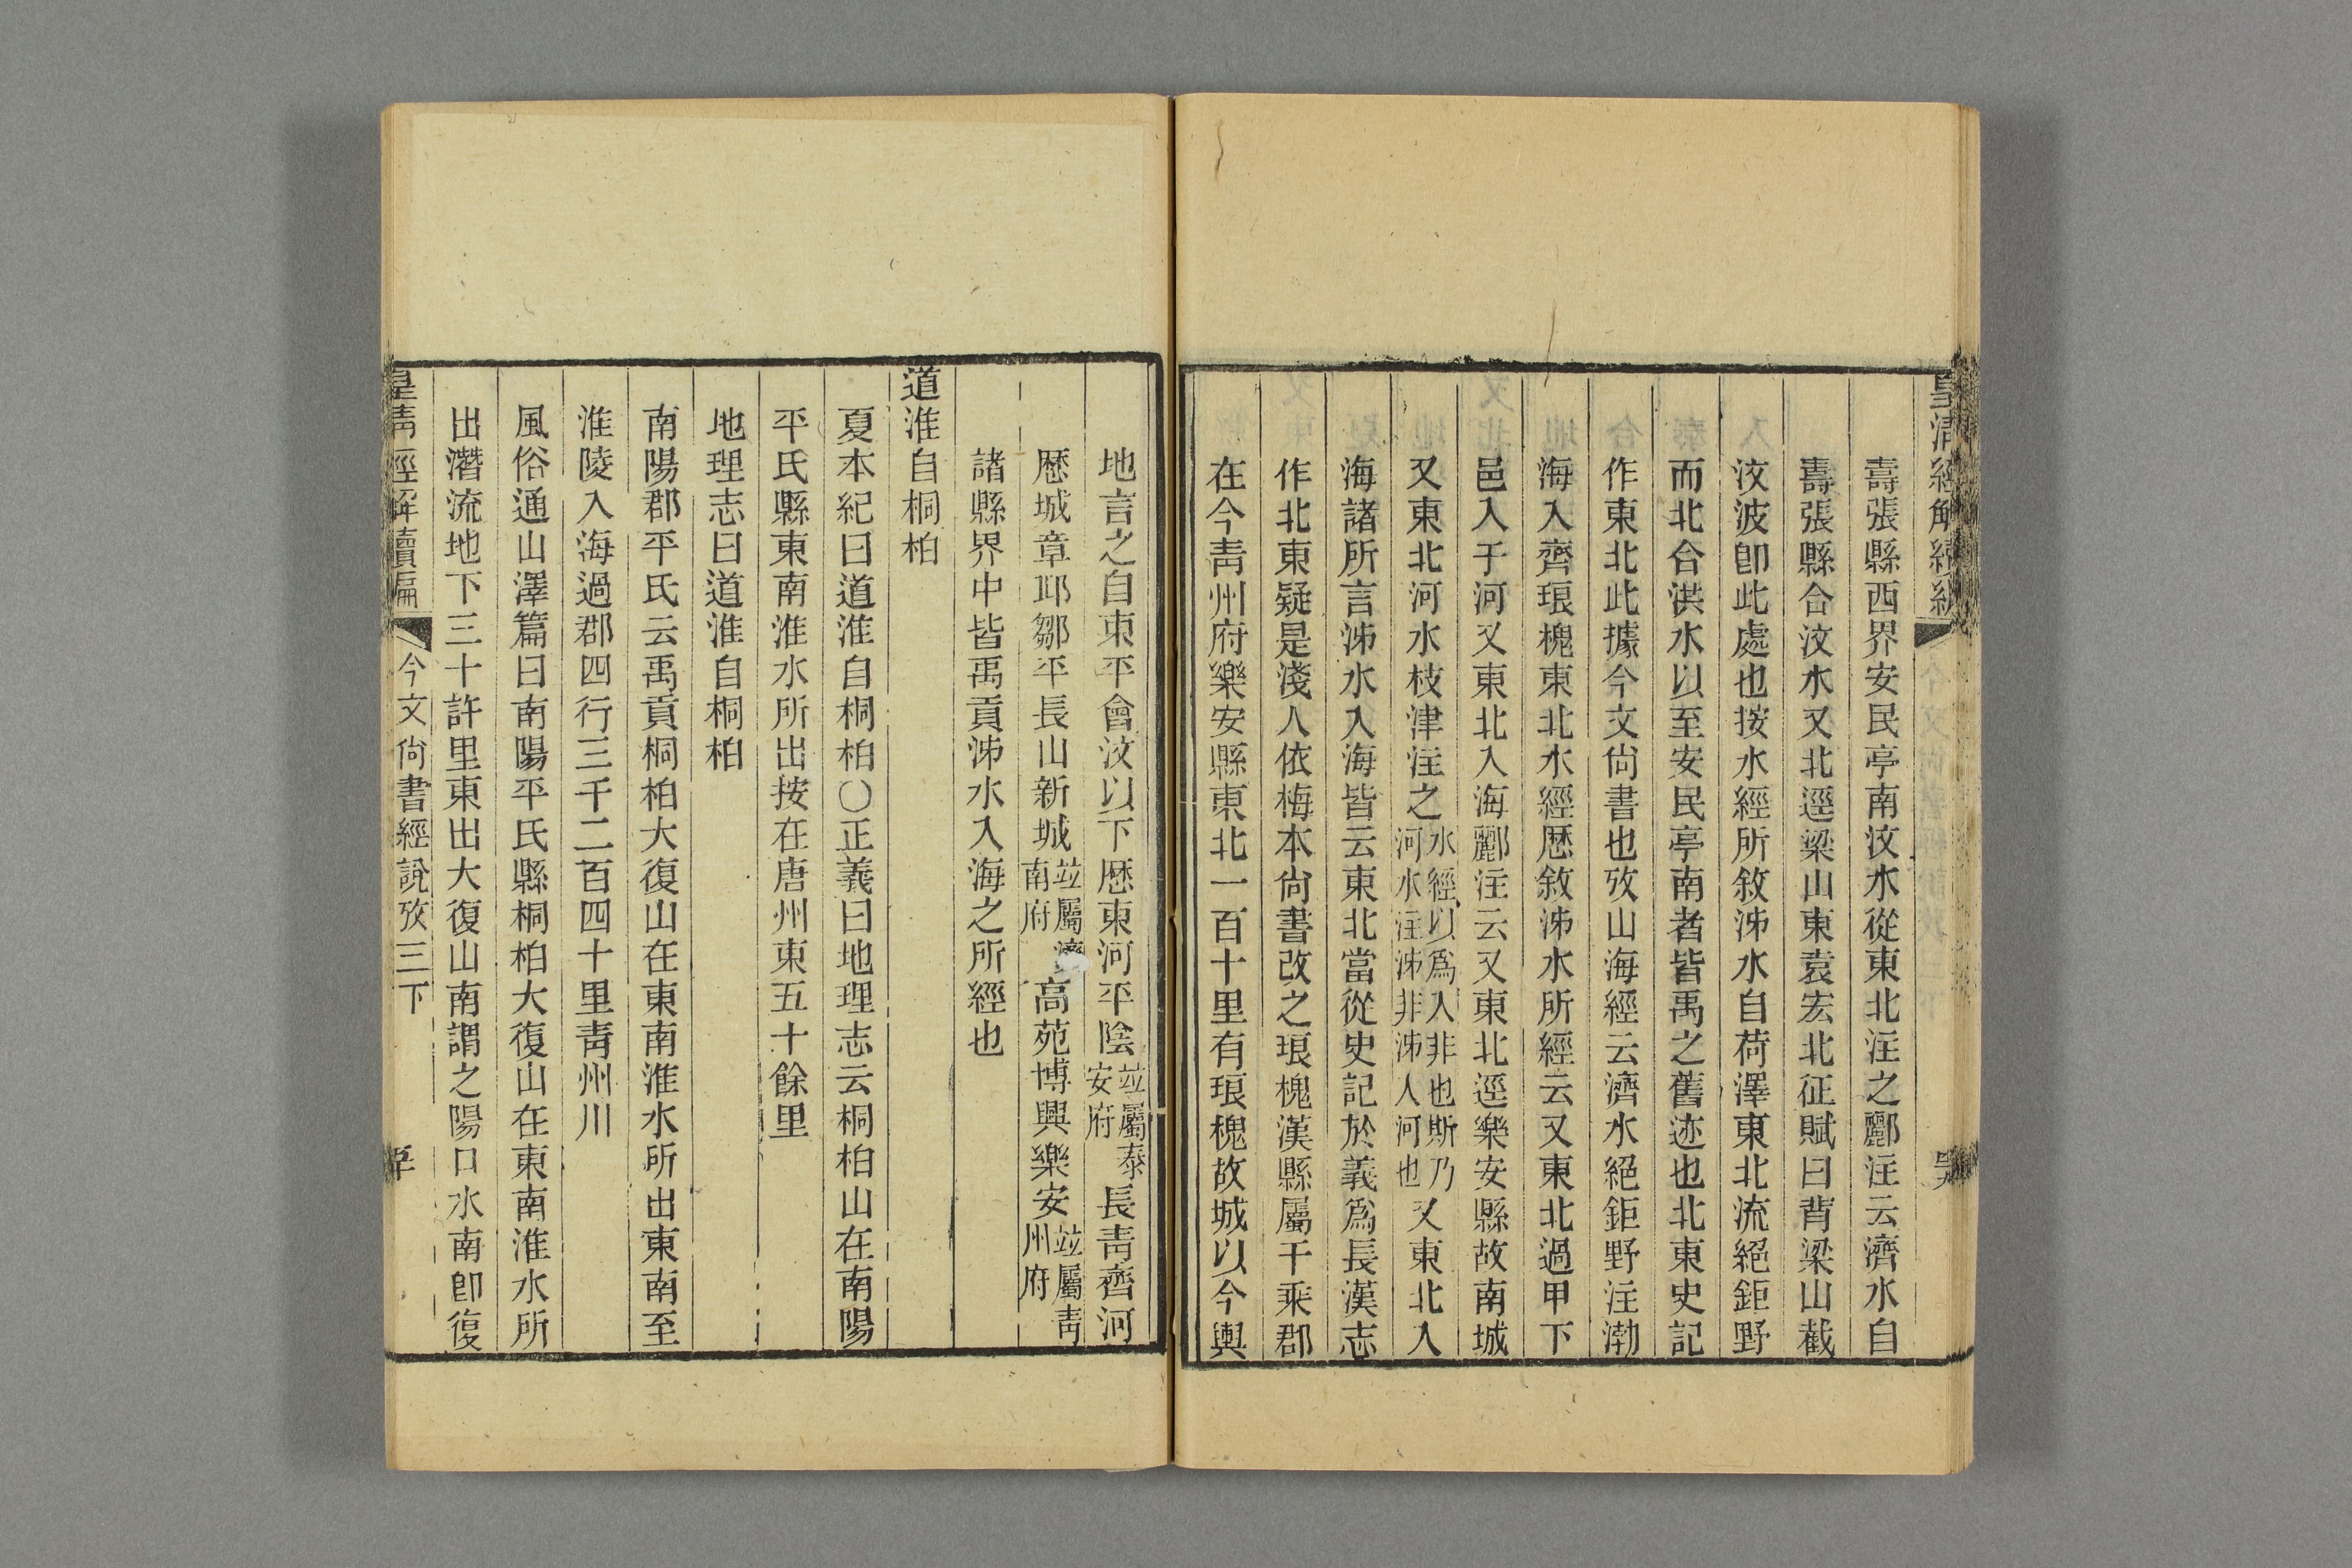 皇清經解續編
壽張縣西界安民亭南汶水從東北注之酈注云濟水自
壽張縣合汶水又北逕梁山東袁宏北征賦曰背梁山截
汶波卽此處也按水經所敘泲水自荷澤東北流絕鉅野
而北合洪水以至安民亭南者皆禹之舊迹也北東史記
作東北此據今文尙書也攷山海經云濟水絕鉅野注渤
海入齊琅槐東北水經歷敘泲水所經云又東北過甲下
邑入于河又東北入海酈注云又東北逕樂安縣故南城
又東北河水枝津注之水經以爲入非也斯乃河水注泲非泲入河也又東北入
海諸所言泲水入海皆云東北當從史記於義爲長漢志
作北東疑是淺人依梅本尙書改之琅槐漢縣屬千乘郡
在今靑州府樂安縣東北一百十里有琅槐故城以今輿
地言之自東平會汶以下歷東河平陰竝屬泰安府長靑齊河
歷城章邱鄒平長山新城竝屬濟南府高苑博興樂安竝屬靑州府
諸縣界中皆禹貢泲水入海之所經也
道淮自桐柏
夏本紀曰道淮自桐柏○正義曰地理志云桐柏山在南陽
平氏縣東南淮水所出按在唐州東五十餘里
地理志曰道淮自桐柏
南陽郡平氏云禹貢桐柏大復山在東南淮水所出東南至
淮陵入海過郡四行三千二百四十里靑州川
風俗通山澤篇曰南陽平氏縣桐柏大復山在東南淮水所
出潛流地下三十許里東出大復山南謂之陽口水南卽復
皇淸經解續編 今文尙書經說攷三下